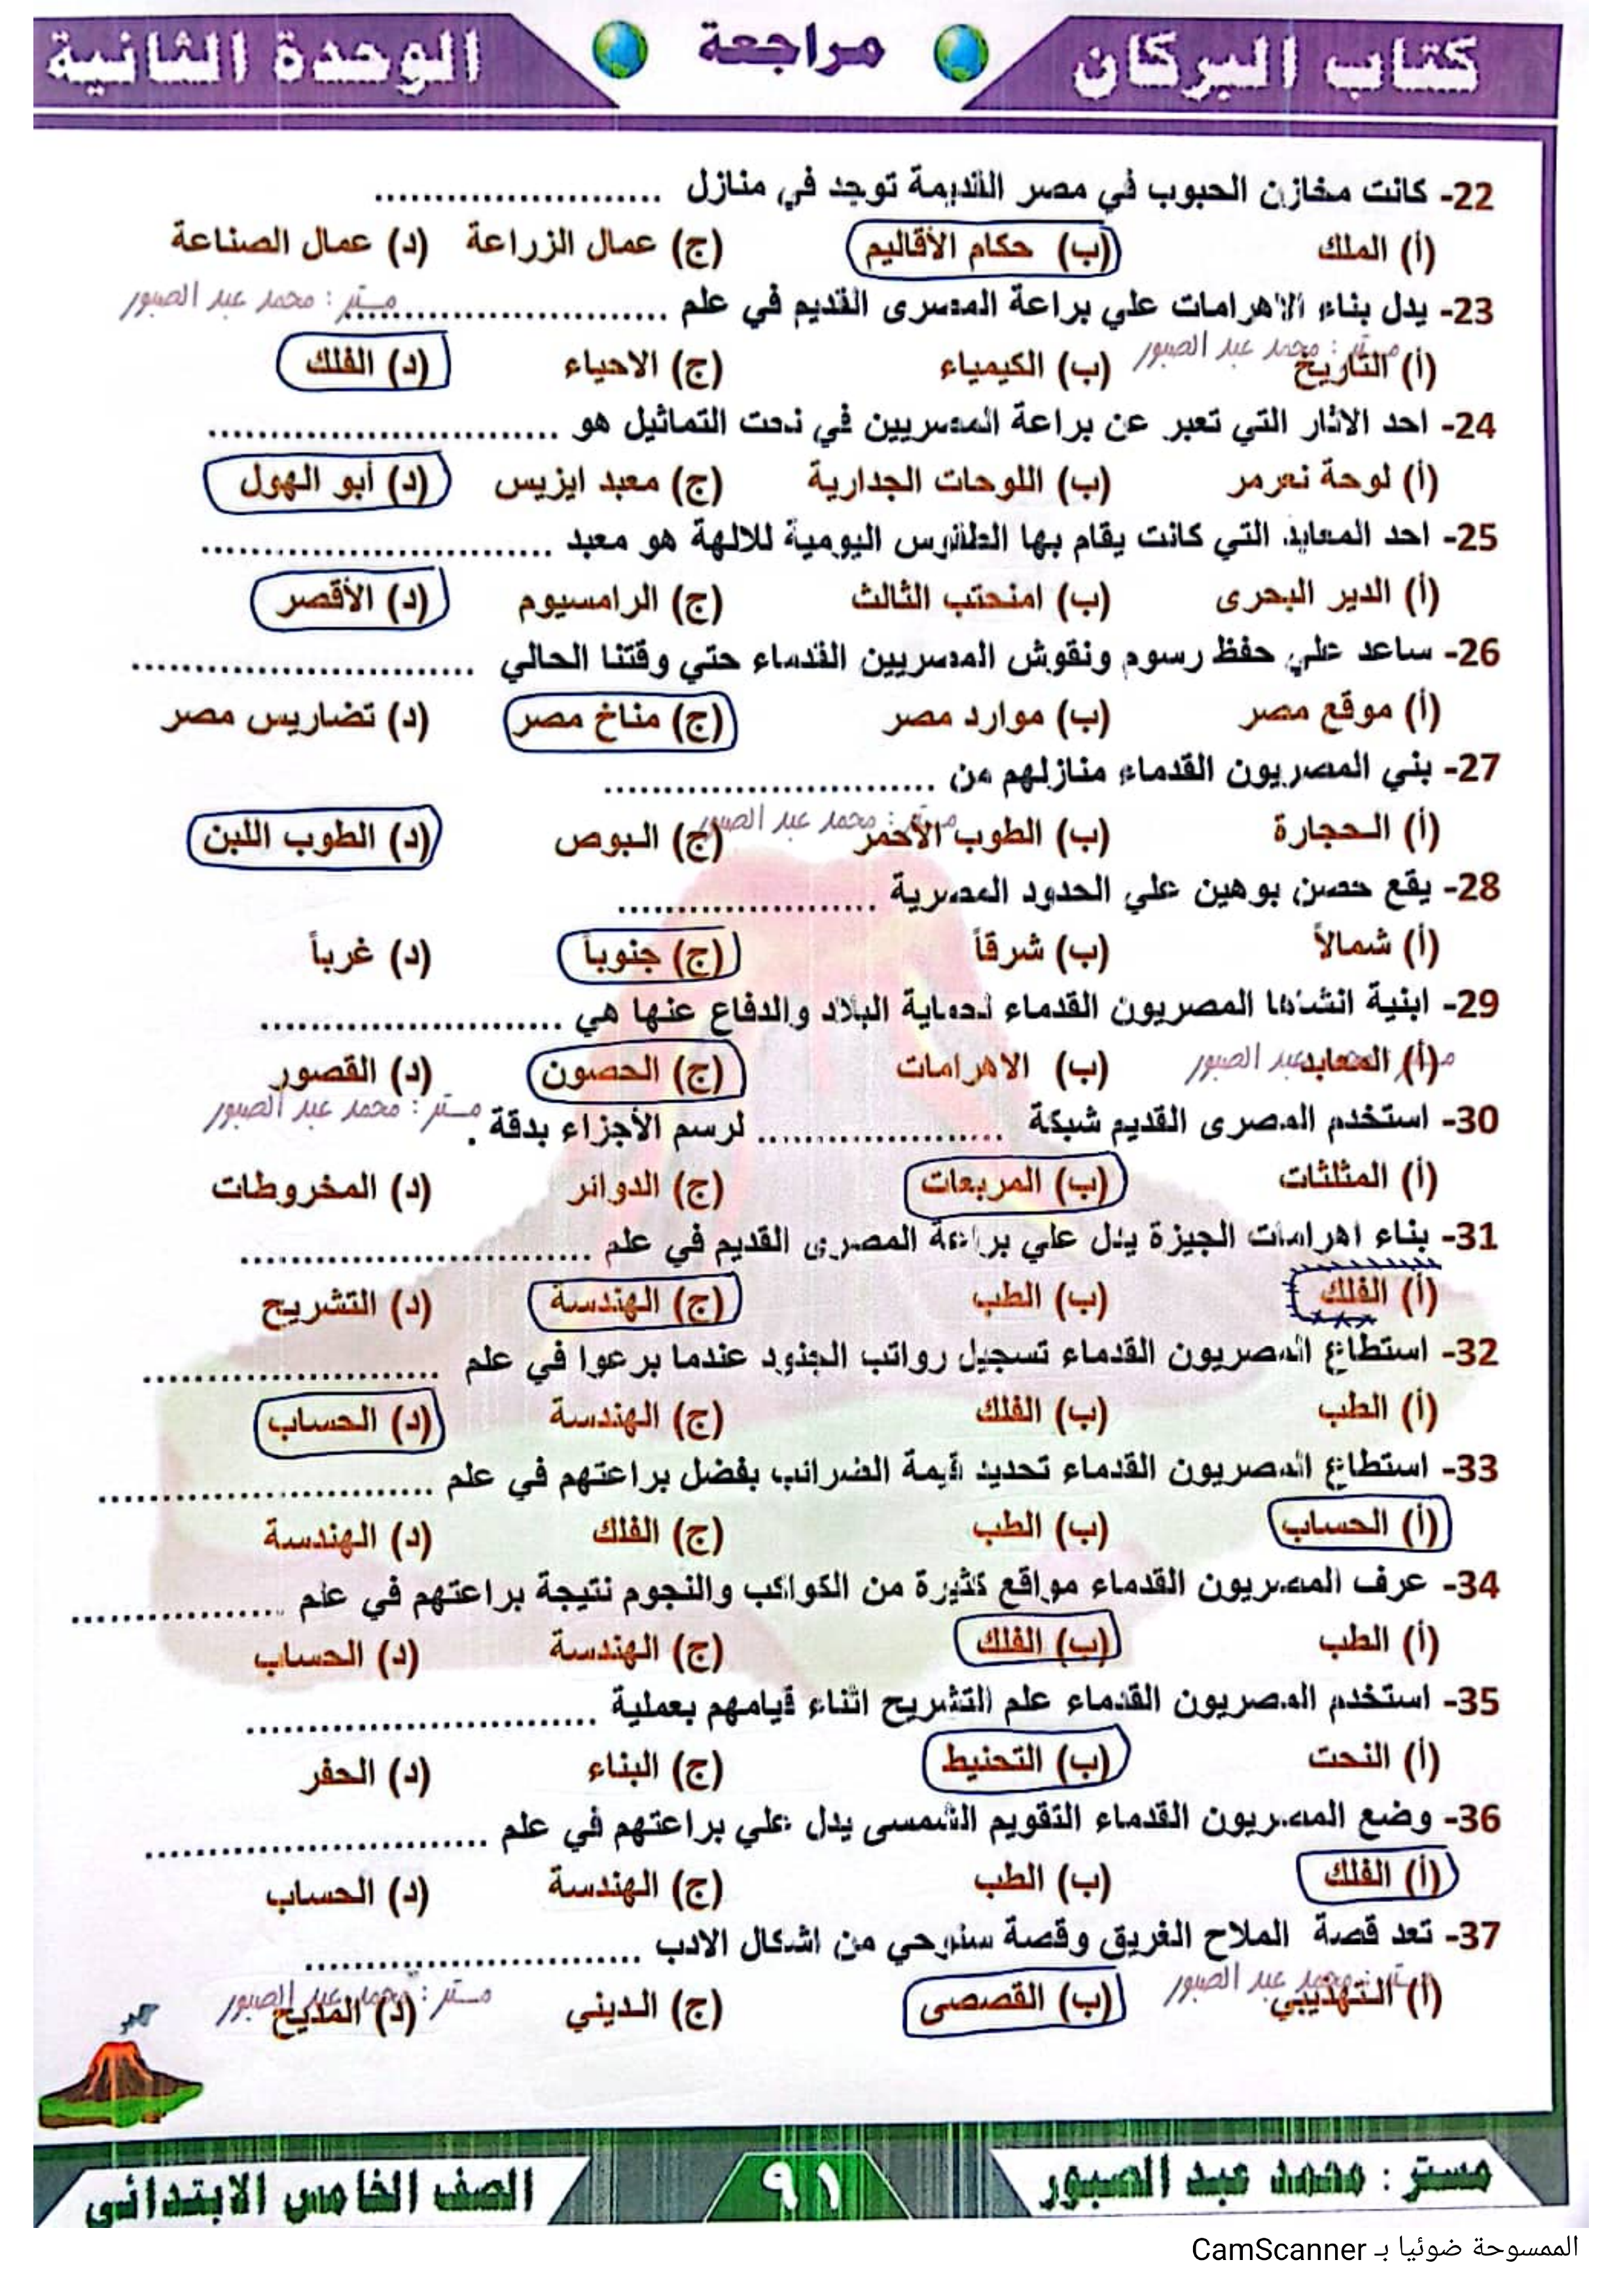 كتاب البركان
مراجعة
الوحدة الثانية
22- كانت مخازن الحبوب في مصر القديمة توجد في منازل ............................
(أ) الملك (ب) حكام الأقاليم (ج) عمال الزراعة (د) عمال الصناعة
مستر : محمد عبد الصبور
23- يدل بناء الاهرامات علي براعة المصرى القديم في علم ................................
مستر : محمد عبد الصبور
(أ) التاريخ (ب) الكيمياء (ج) الاحياء (د) الفلك
24- احد الاثار التي تعبر عن براعة المصريين في نحت التماثيل هو ..................................
(أ) لوحة نعرمر (ب) اللوحات الجدارية (ج) معبد ايزيس (د) أبو الهول
25- احد المعابد التي كانت يقام بها الطقوس اليومية للالهة هو معبد ..................................
(أ) الدير البحرى (ب) امنحتب الثالث (ج) الرامسيوم (د) الأقصر
26- ساعد علي حفظ رسوم ونقوش المصريين القدماء حتي وقتنا الحالي .................................
(أ) موقع مصر (ب) موارد مصر (ج) مناخ مصر (د) تضاريس مصر
27- بني المصريون القدماء منازلهم من ................................
مستر : محمد عبد الصبور
(أ) الحجارة (ب) الطوب الأحمر (ج) البوص (د) الطوب اللبن
28- يقع حصن بوهين علي الحدود المصرية .........................
(أ) شمالاً (ب) شرقاً (ج) جنوباً (د) غرباً
29- ابنية انشئها المصريون القدماء لحماية البلاد والدفاع عنها هي .............................
مستر : محمد عبد الصبور
(أ) المعابد (ب) الاهرامات (ج) الحصون (د) القصور
مستر : محمد عبد الصبور
30- استخدم المصرى القديم شبكة ........................ لرسم الأجزاء بدقة .
(أ) المثلثات (ب) المربعات (ج) الدوائر (د) المخروطات
31- بناء اهرامات الجيزة يدل علي براعة المصرى القديم في علم ..................................
(أ) الفلك (ب) الطب (ج) الهندسة (د) التشريح
32- استطاع المصريون القدماء تسجيل رواتب الجنود عندما برعوا في علم .............................
(أ) الطب (ب) الفلك (ج) الهندسة (د) الحساب
33- استطاع المصريون القدماء تحديد قيمة الضرائب بفضل براعتهم في علم ................................
(أ) الحساب (ب) الطب (ج) الفلك (د) الهندسة
34- عرف المصريون القدماء مواقع كثيرة من الكواكب والنجوم نتيجة براعتهم في علم .....................
(أ) الطب (ب) الفلك (ج) الهندسة (د) الحساب
35- استخدم المصريون القدماء علم التشريح اثناء قيامهم بعملية ..................................
(أ) النحت (ب) التحنيط (ج) البناء (د) الحفر
36- وضع المصريون القدماء التقويم الشمسى يدل علي براعتهم في علم .................................
(أ) الفلك (ب) الطب (ج) الهندسة (د) الحساب
37- تعد قصة الملاح الغريق وقصة سنوحي من اشكال الادب ................................
مستر : محمد عبد الصبور
مستر : محمد عبد الصبور
(أ) التهذيبي (ب) القصصى (ج) الديني (د) المديح
مستر : محمد عبد الصبور
٩١
الصف الخامس الابتدائى
الممسوحة ضوئيا بـ CamScanner